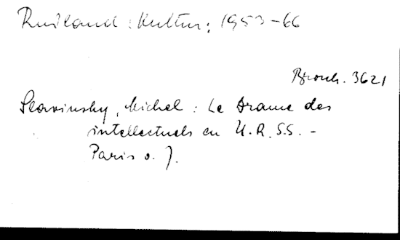 Rußland : Kultur; 1953-66
Brosch. 3621
Slavinsky, Michel : Le Drame des
intellectuels en U.R.S.S. -
Paris o. J.